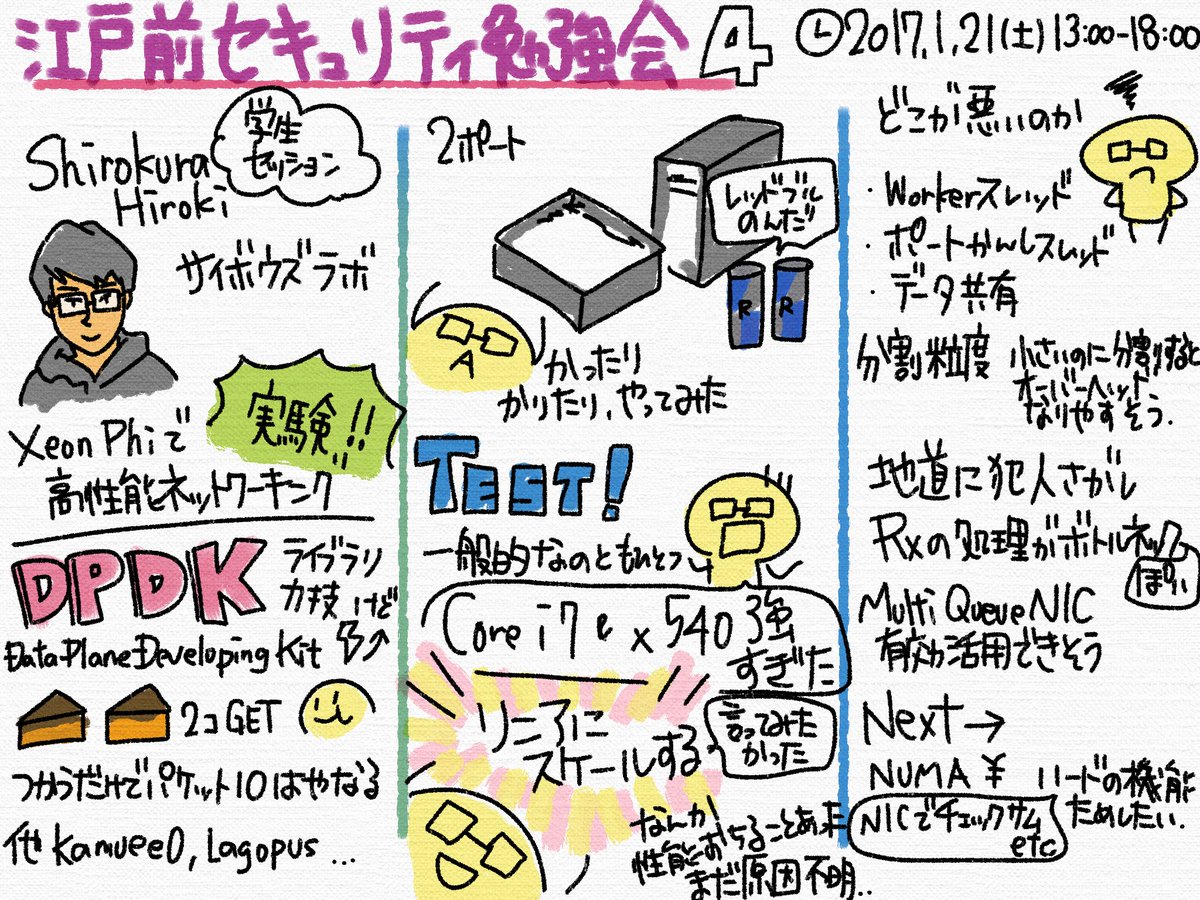 江戸前セキュリティ勉強会 4
2017.1.21(土)13:00-18:00
Shirokura
Hiroki
学生
セッション
サイボウズラボ
Xeon Phiで
高性能ネットワーキング
実験!!
DPDK
ライブラリ
力技 けど
Data Plane Developing Kit
2コGET
つかうだけでパケットIOはやなる
他 kamuee0, Lagopus ...
2ポート
レッドブル
のんだ!!
R
R
かったり
かりたり、やってみた
TEST!
一般的なのと
Core i7 と x540 強
すぎた
リニアに
スケールする
言ってみた
かった
なんか
性能おちることあ
まだ原因不明..
どこが悪いのか
・Workerスレッド
・ポートかんしスレッド
・データ共有
分割粒度
小さいのに分割すると
オーバーヘッド
なりやすそう.
地道に犯人さがし
Rxの処理がボトルネック
ぽい
Multi Queue NIC
有効活用できそう
Next→
NUMA ¥
ハードの機能
ためしたい.
NICでチェックサム
etc